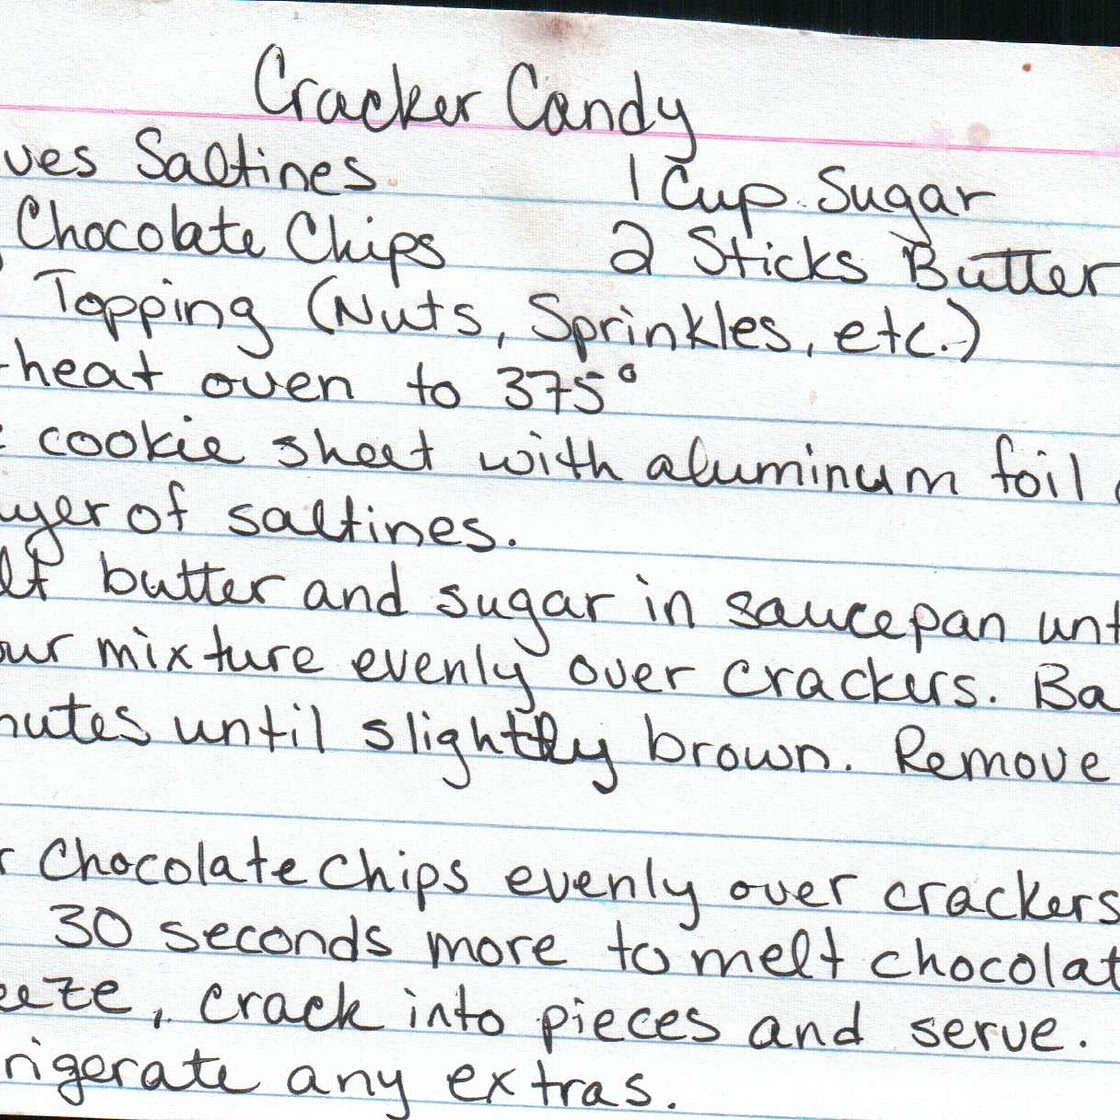 Cracker Candy
ves Saltines 1 Cup Sugar
Chocolate Chips 2 Sticks Butter
Topping (Nuts, Sprinkles, etc.)
-heat oven to 375°
cookie sheet with aluminum foil
yer of saltines.
lt butter and sugar in saucepan unt
our mixture evenly over crackers. Ba
nutes until slightly brown. Remove
r Chocolate Chips evenly over crackers
30 seconds more to melt chocolat
eeze, crack into pieces and serve.
rigerate any extras.